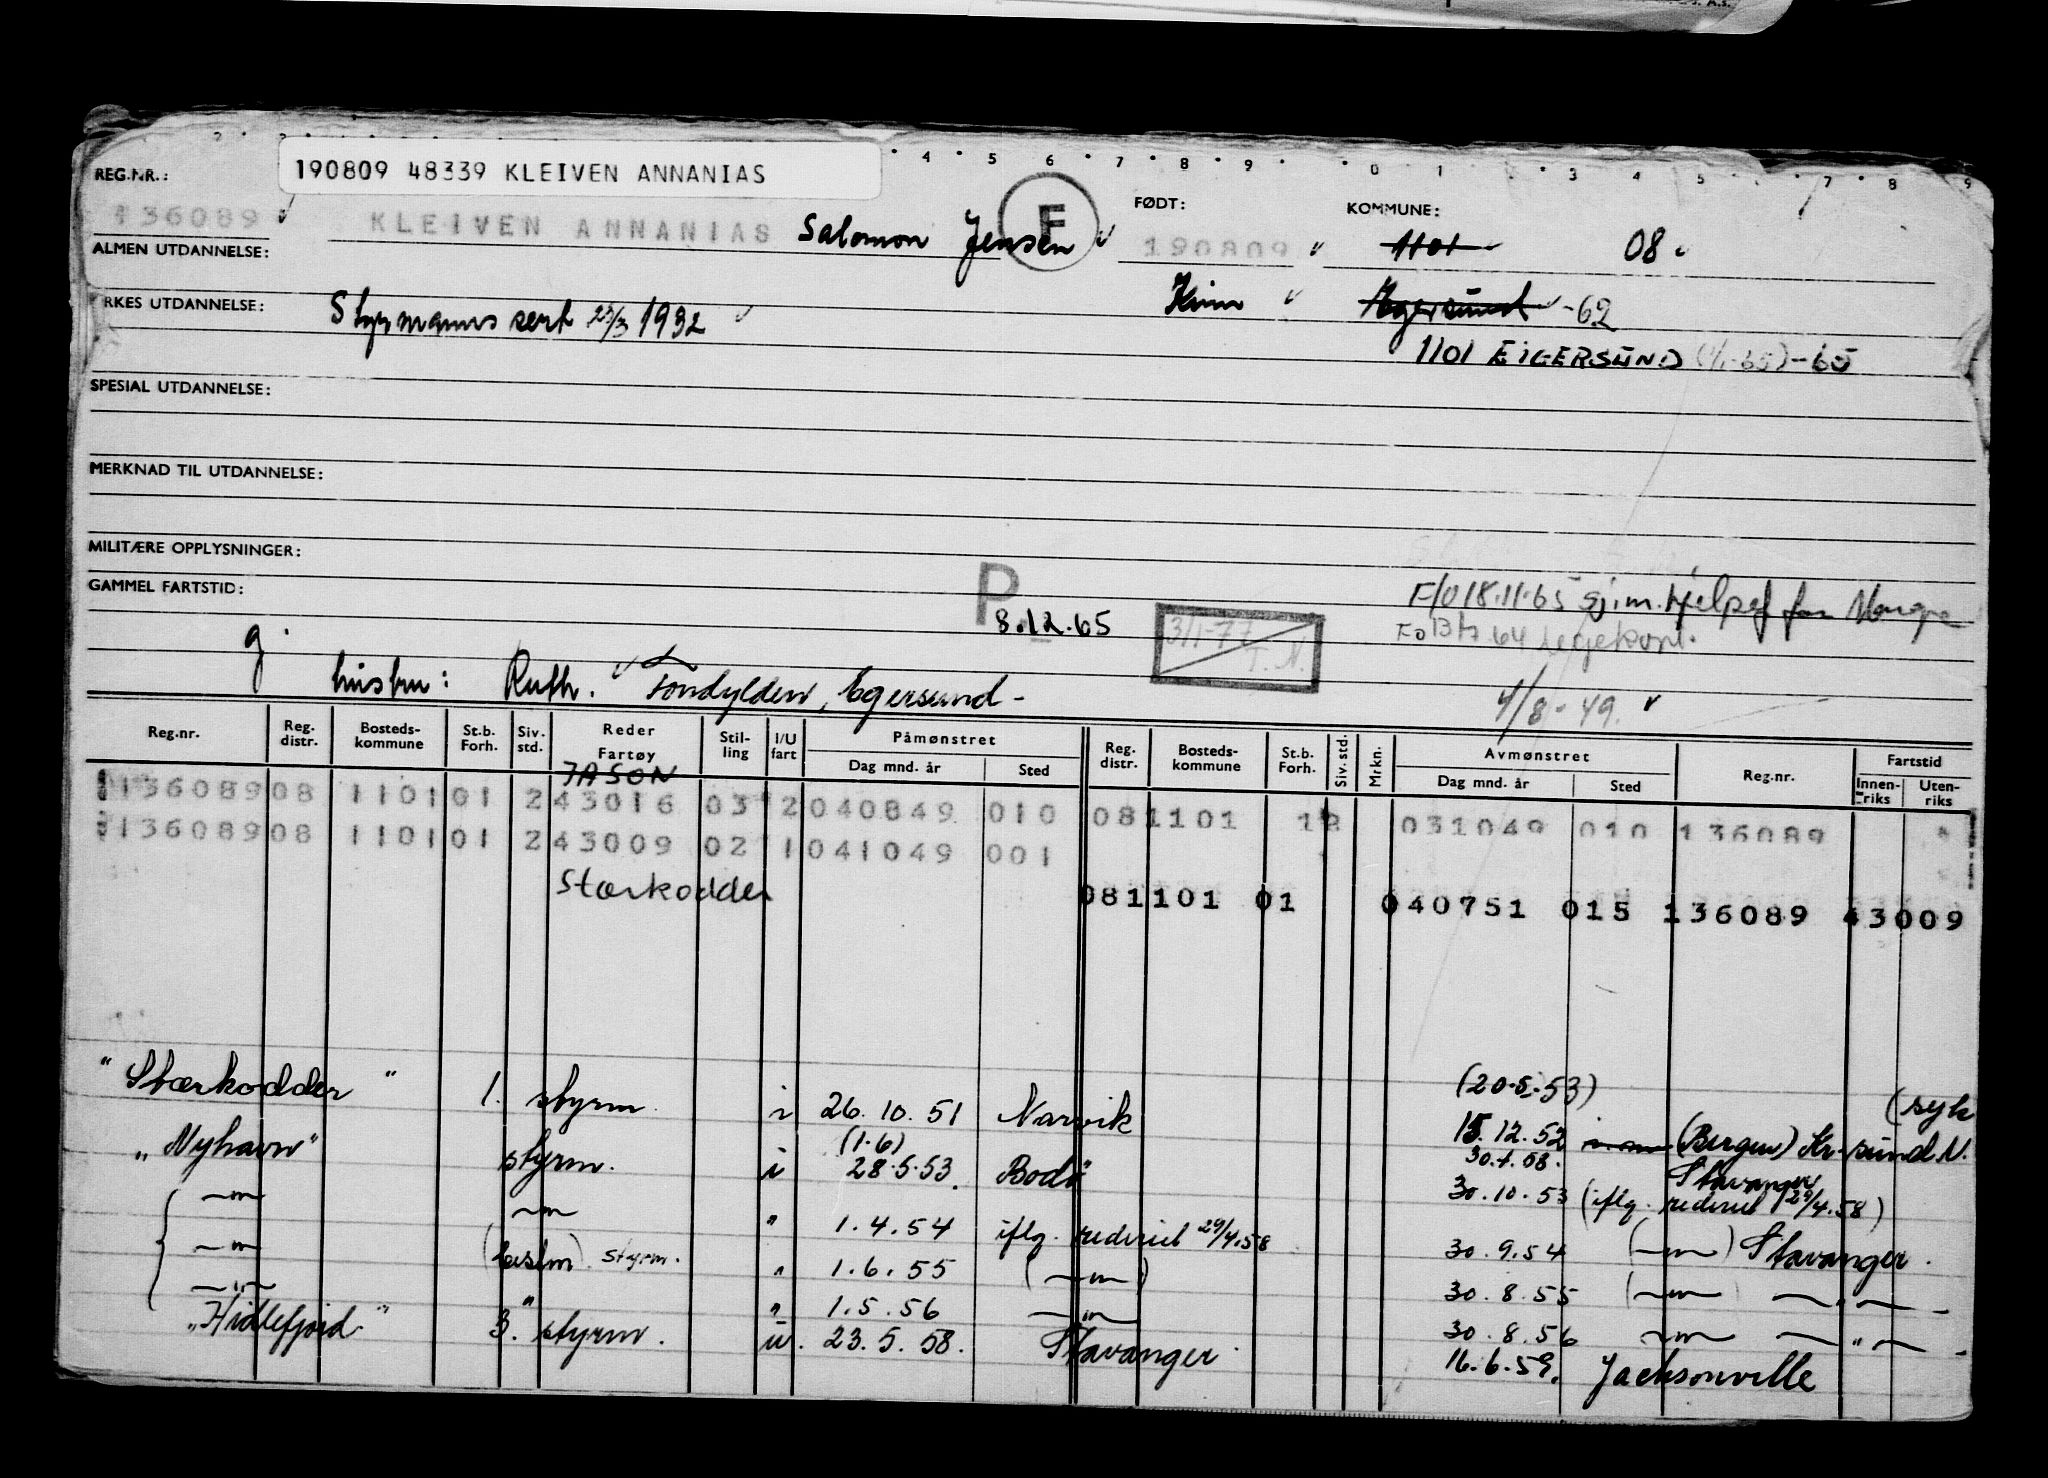 190809 48339 KLEIVEN ANNANIAS
4 5 6 7 8 9 0 1 3 4 5 7 8 9
REG.NR.: FØDT: KOMMUNE:
136089 KLEIVEN ANNANIAS Salomon Jensen F 190809 1101 08
ALMEN UTDANNELSE:
YRKES UTDANNELSE: Styrmanns sert 23/3 1932 Hvim Egersund -62
1101 EIGERSUND (1/1-65)-65
SPESIAL UTDANNELSE:
MERKNAD TIL UTDANNELSE:
MILITÆRE OPPLYSNINGER:
GAMMEL FARTSTID:
P 8.12.65
F/O 18.11.65 gj.m. hjelpef for
Fo 64 legekont.
3/1-77 T.N.
g.
hustru: Ruth. , Egersund -
4/8-49.
Reg.nr. Reg. distr. Bosteds- kommune St.b. Forh. Siv. std. Reder Fartøy Stil- ling I/U fart Påmønstret Dag mnd. år Sted Reg. distr. Bosteds- kommune St.b. Forh. Siv. std. Mrkn. Avmønstret Dag mnd. år Sted Reg.nr. Fartstid Innen- riks Uten- riks
JASON
136089 08 1101 01 2 43016 03 2 040849 010 08 1101 12 031049 010 136089
136089 08 1101 01 2 43009 02 1 041049 001
Stærkodder 08 1101 01 040751 015 136089 43009
(20.5.53) (syk
"Stærkodder" 1. styrm. i 26.10.51 Narvik 15.12.52 (Bergen) Kr-sund N.
(1.6) 30.4.58. Stavanger
"Nyhavn" styrm. i 28.5.53. Bodø 30.10.53 (iflg. rederiet 29/4.58)
— " — — " — " 1.4.54 iflg. rederiet 29/4.58 30.9.54 (— " —) Stavanger.
— " — (bestm) styrm. " 1.6.55 (— " —) 30.8.55 (— " —) — " —
— " — " " 1.5.56 — " — 30.8.56 — " — — " —
"Hidlefjord" 3. styrm. u. 23.5.58. Stavanger 16.6.59. Jacksonville